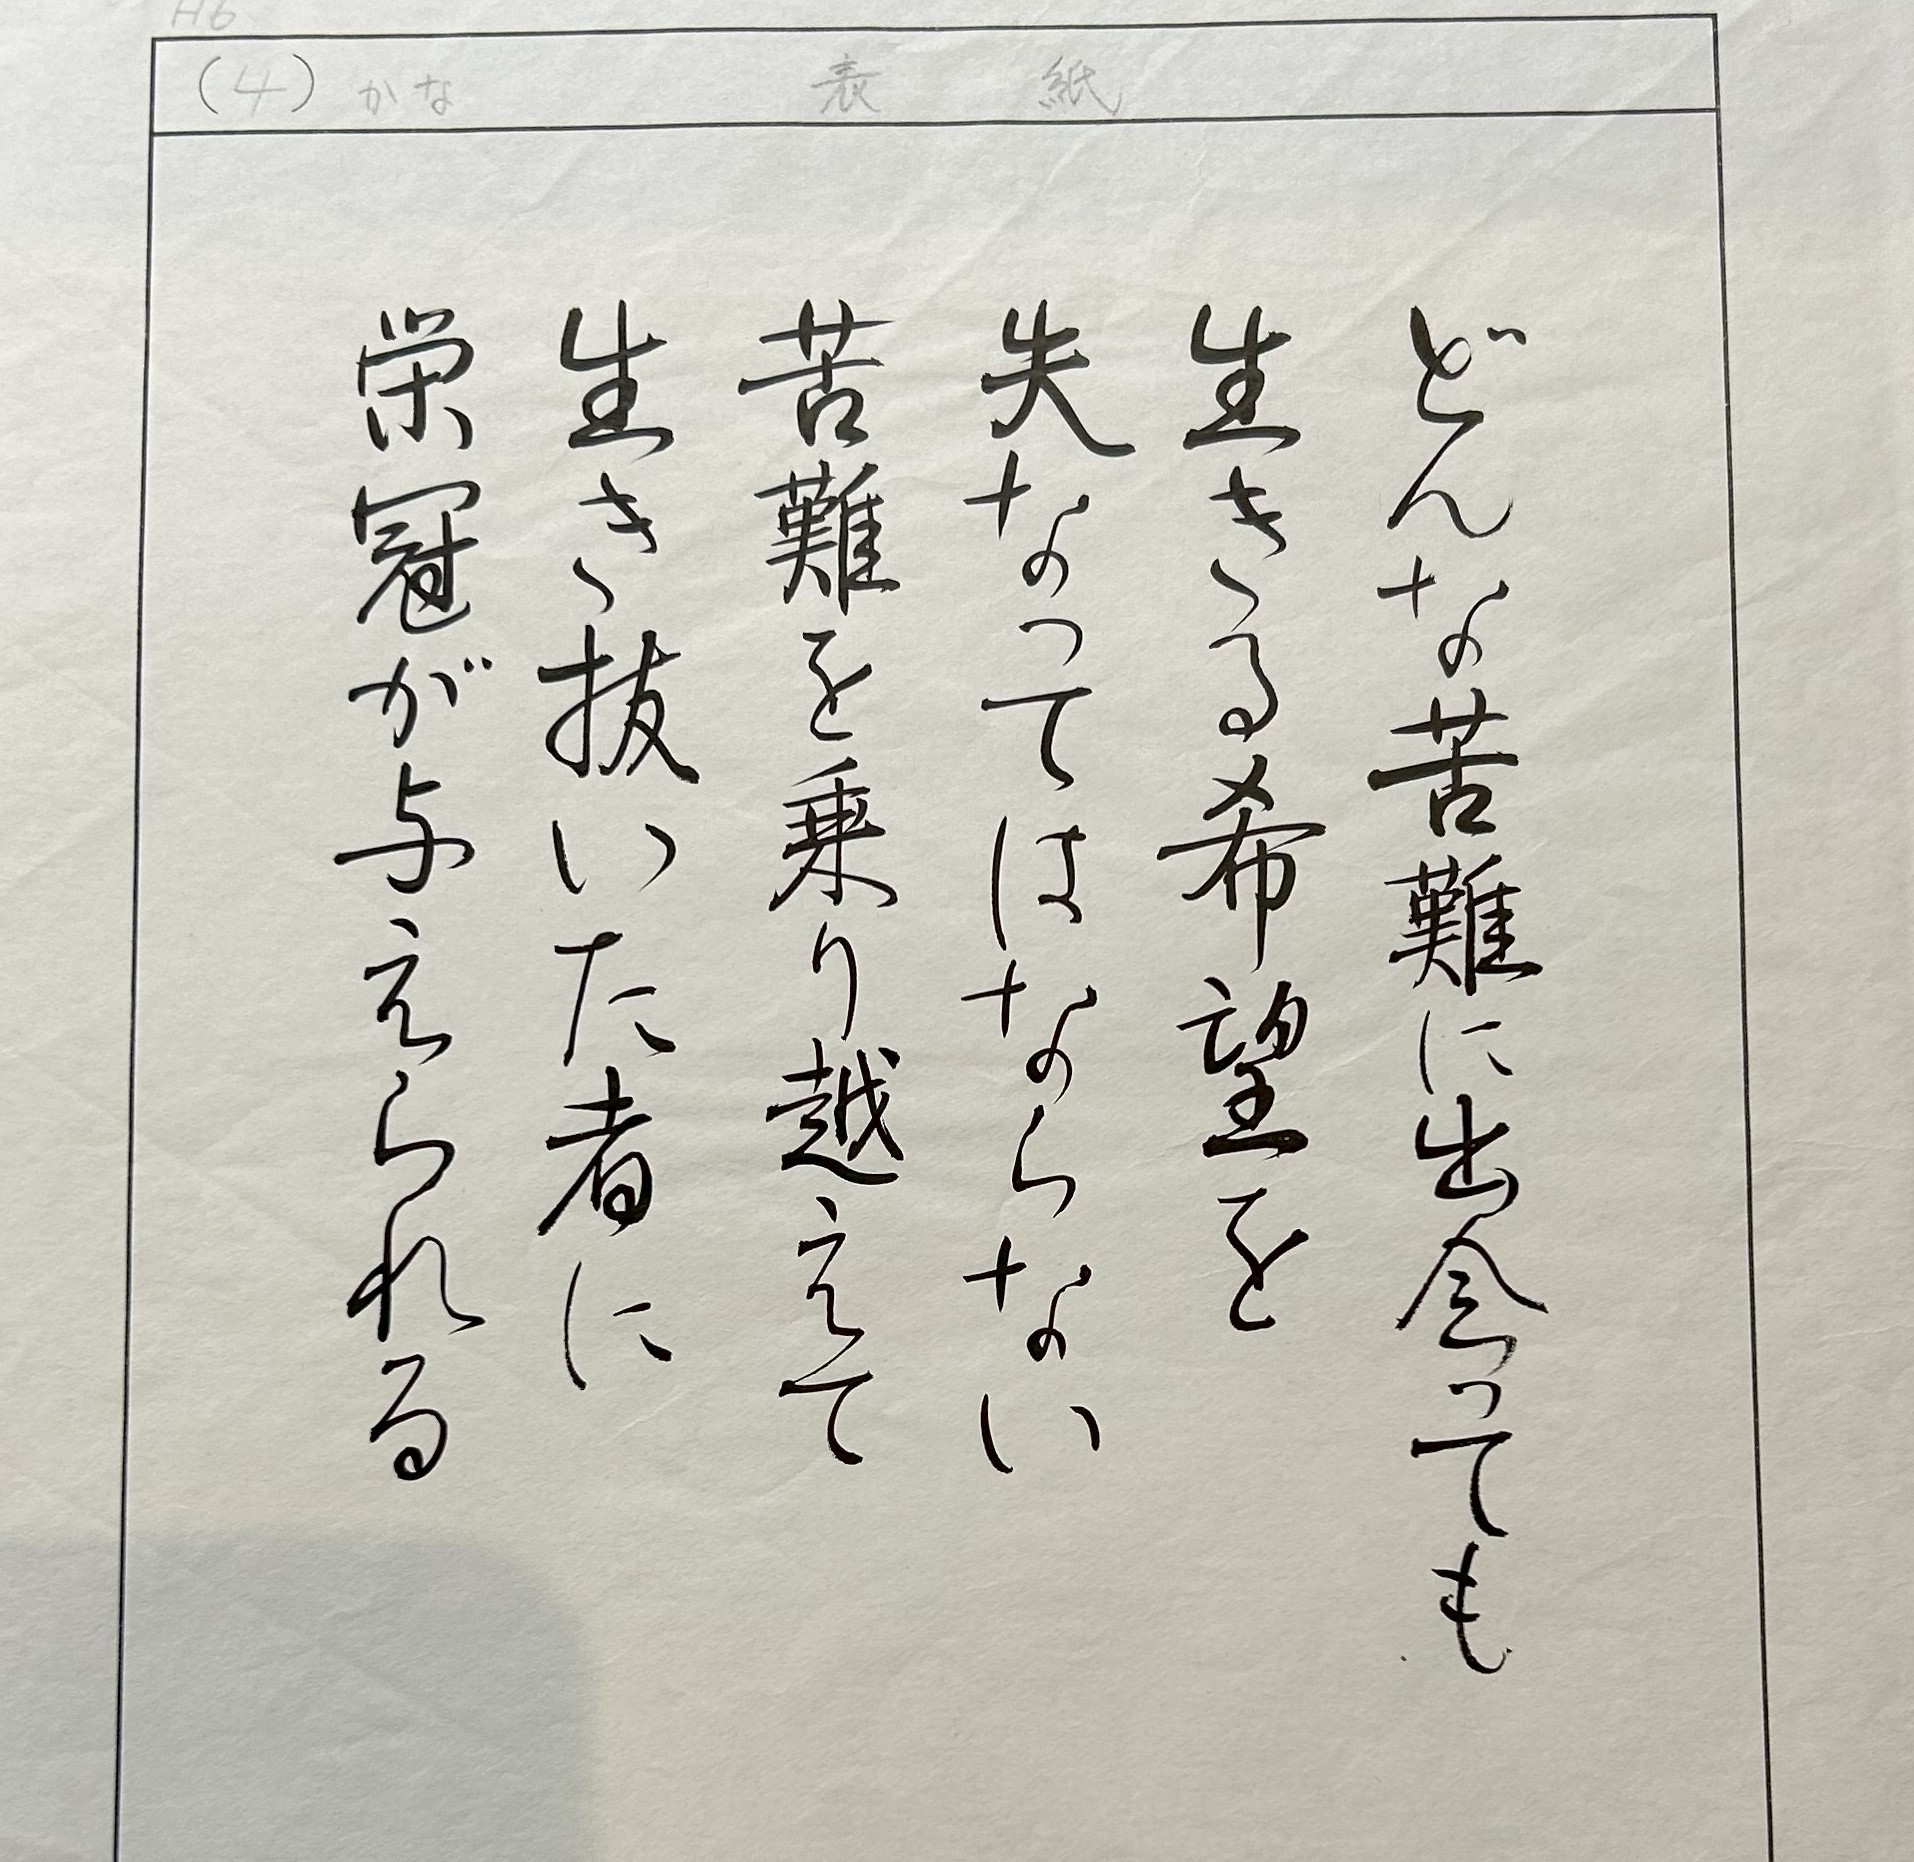 H6
(4) かな 表紙
どんな苦難に出会っても
生きる希望を
失なってはならない
苦難を乗り越えて
生き抜いた者に
栄冠が与えられる